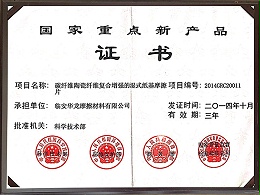 国家重点新产品
证书
项目名称：碳纤维陶瓷纤维复合增强的湿式纸基摩擦片 项目编号：2014GRC20011
承担单位：临安华龙摩擦材料有限公司 发证时间：二〇一四年十月
批准机关：科学技术部 有效期：三年